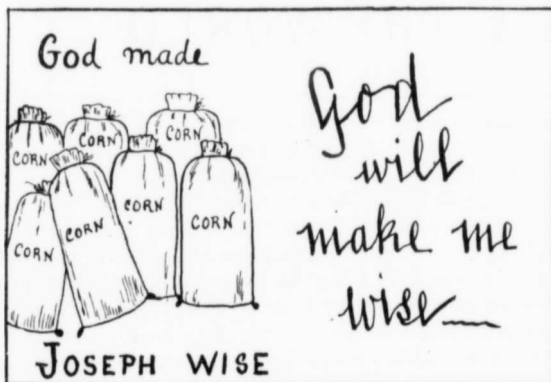 God made
CORN
CORN
CORN
CORN
CORN
CORN
CORN
JOSEPH WISE
God
will
make me
wise